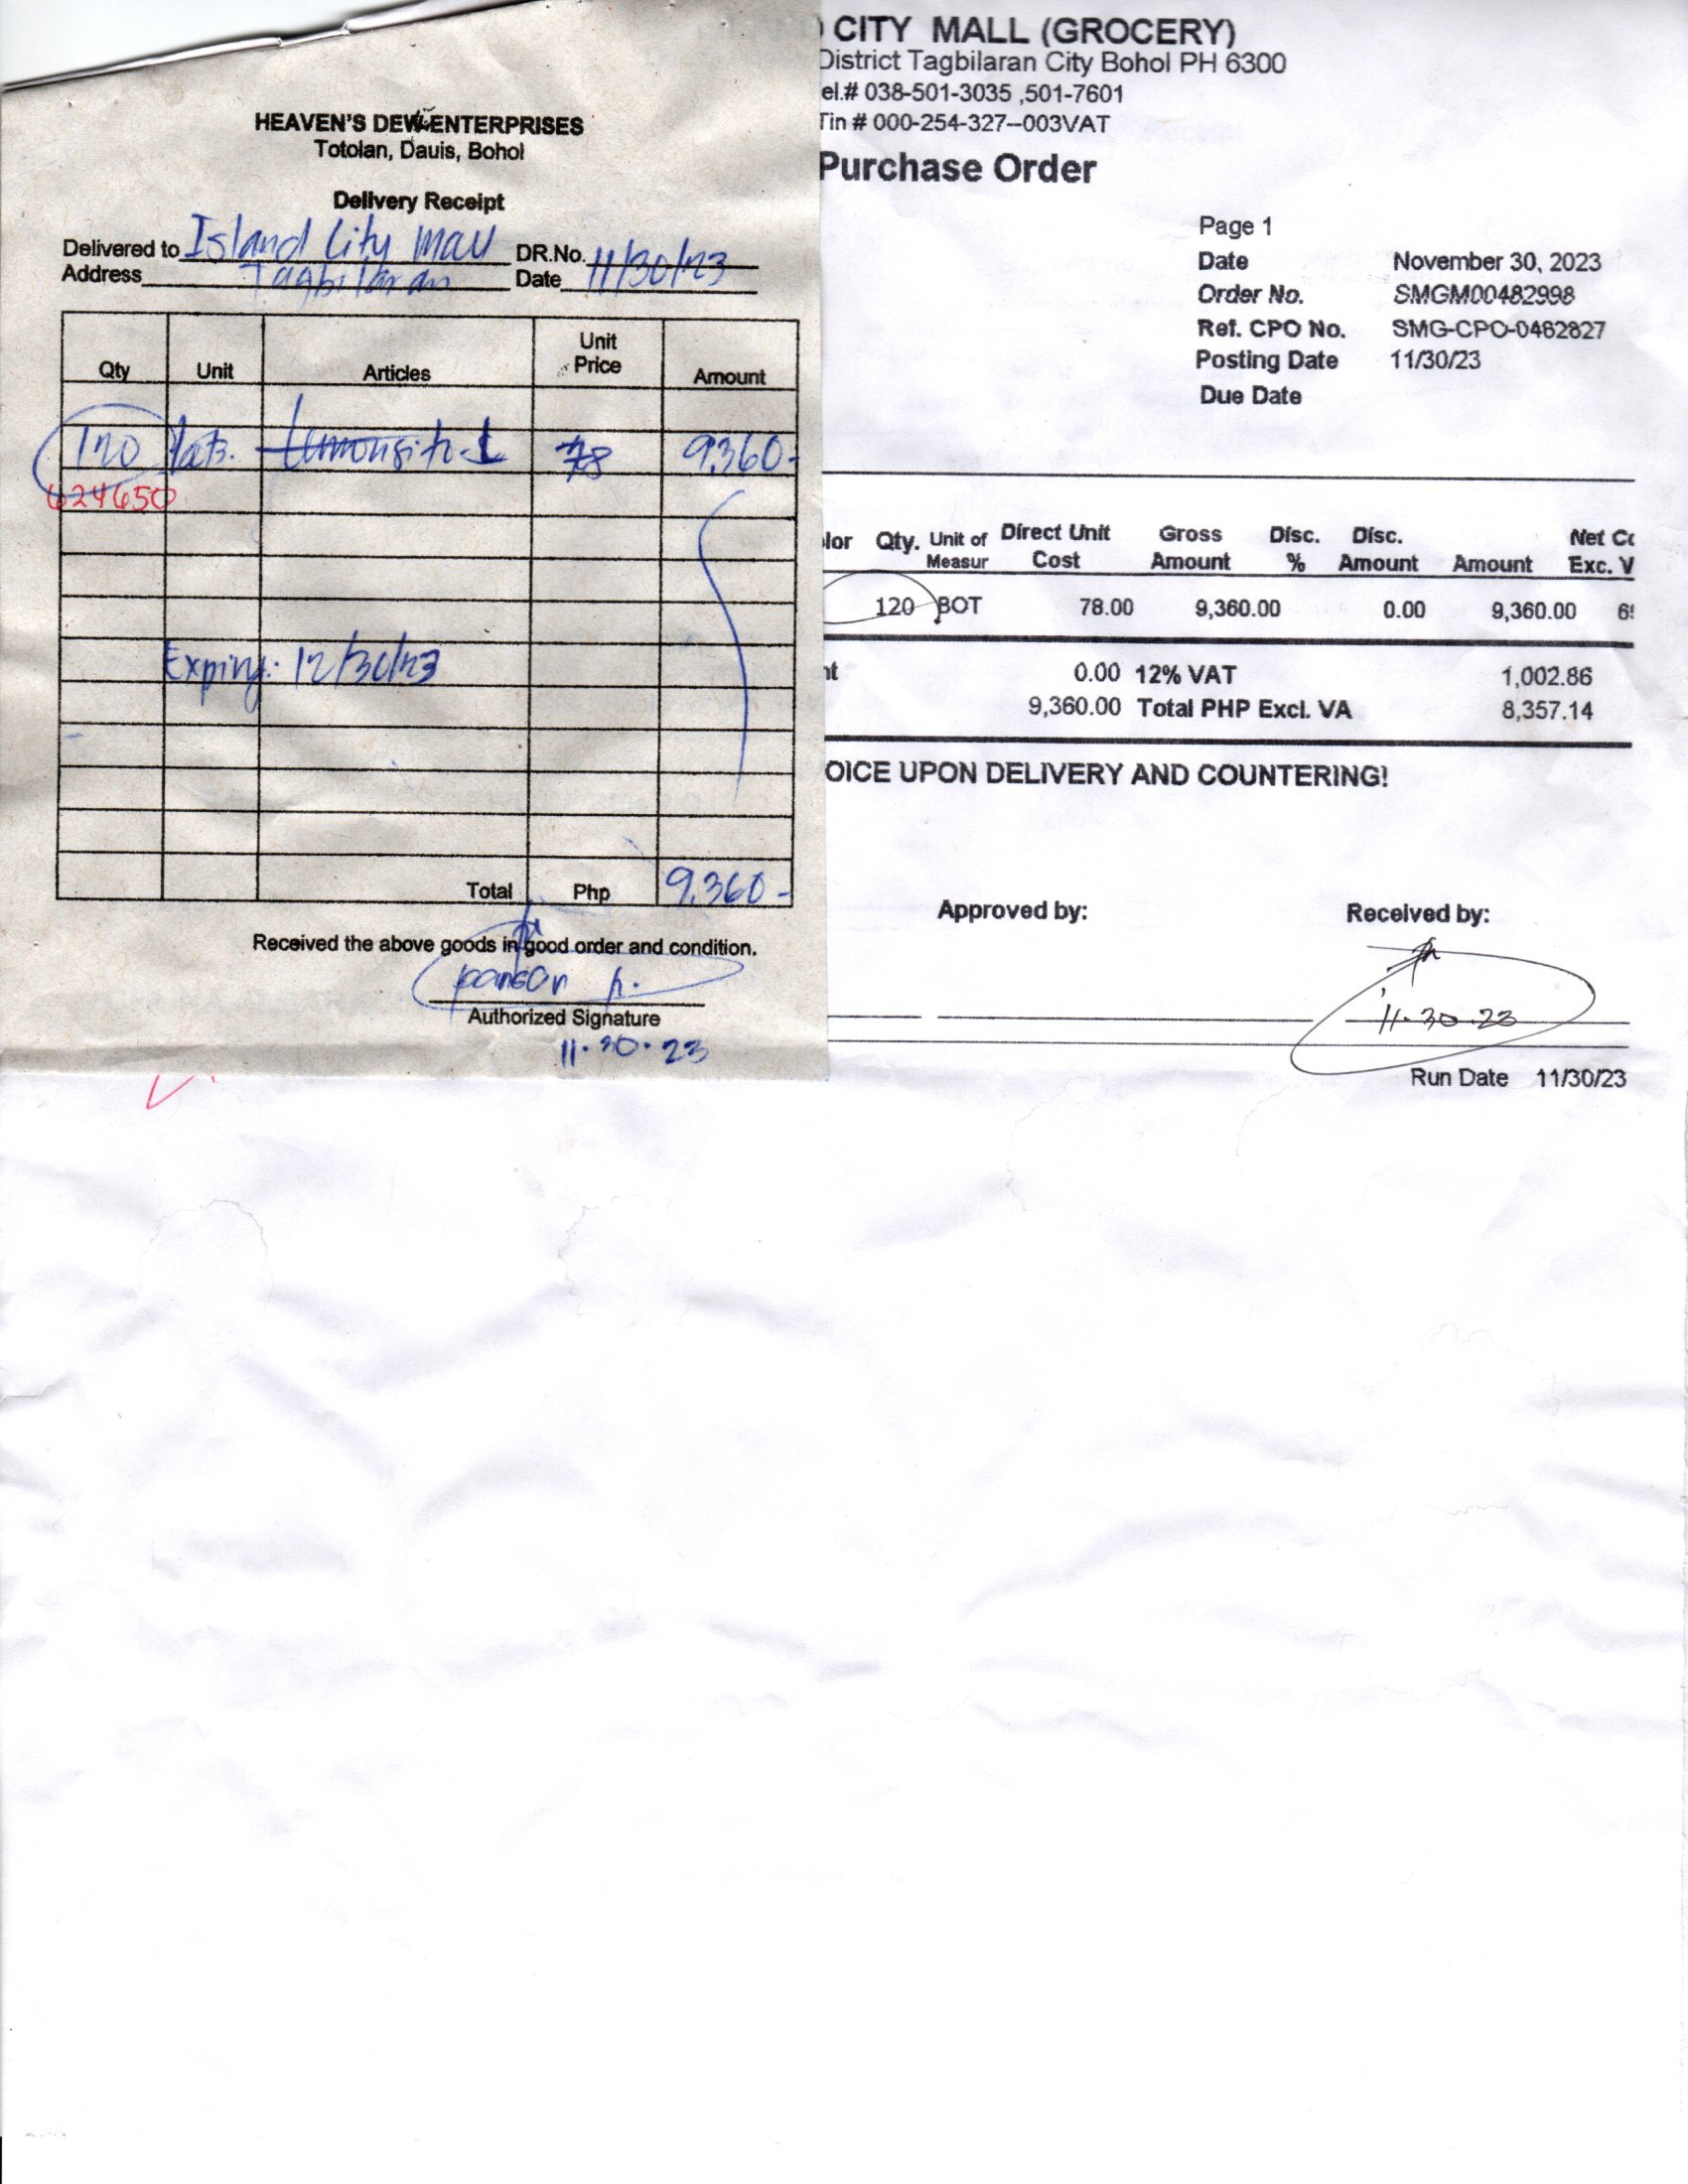 HEAVEN'S DEW ENTERPRISES
Totolan, Dauis, Bohol
Delivery Receipt
Delivered to Island City Mall DR.No.
Address Tagbilaran Date 11/30/23
Qty Unit Articles Unit Price Amount
120 78 9,360-
624650
Expiry: 12/30/23
Total Php 9,360-
Received the above goods in good order and condition.
Authorized Signature
11.30.23
CITY MALL (GROCERY)
District Tagbilaran City Bohol PH 6300
el.# 038-501-3035 ,501-7601
Tin # 000-254-327--003VAT
Purchase Order
Page 1
Date November 30, 2023
Order No. SMGM00482998
Ref. CPO No. SMG-CPO-0462827
Posting Date 11/30/23
Due Date
lor Qty. Unit of Measur Direct Unit Cost Gross Amount Disc. % Disc. Amount Amount Net Co Exc. V
120 BOT 78.00 9,360.00 0.00 9,360.00
nt 0.00 12% VAT 1,002.86
9,360.00 Total PHP Excl. VA 8,357.14
OICE UPON DELIVERY AND COUNTERING!
Approved by: Received by:
11.30.23
Run Date 11/30/23